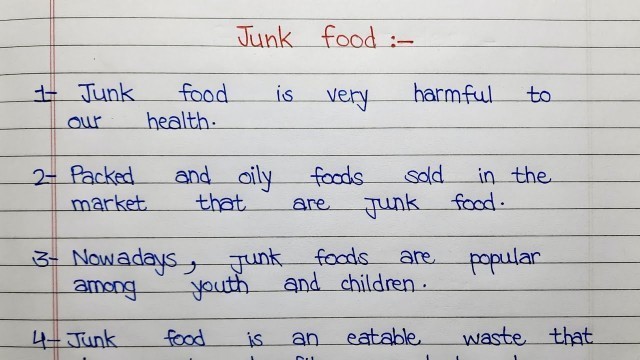 Junk food :-
1- Junk food is very harmful to
our health.
2- Packed and oily foods sold in the
market that are Junk food.
3- Nowadays, Junk foods are popular
among youth and children.
4- Junk food is an eatable waste that